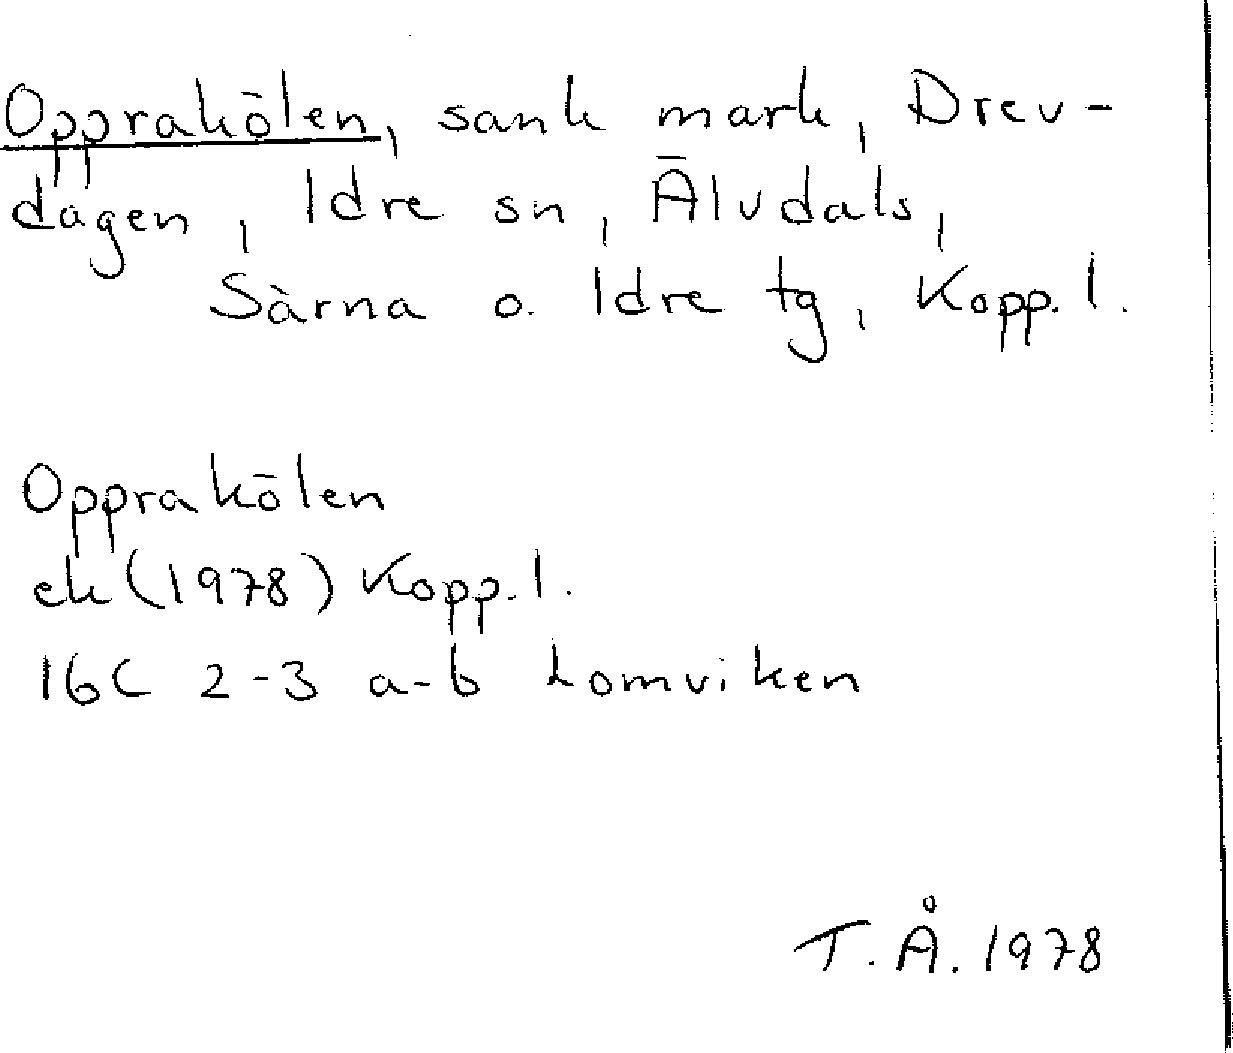 Opprakölen, sank mark, Drev-
dagen, Idre sn, Älvdals,
Särna o. Idre tg, Kopp. l.
Opprakölen
ek (1978) Kopp. l.
16C 2-3 a-b Lomviken
T.Å. 1978